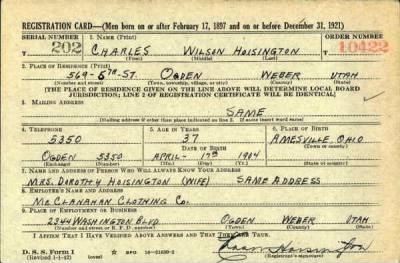 REGISTRATION CARD—(Men born on or after February 17, 1897 and on or before December 31, 1921)
SERIAL NUMBER 1. NAME (Print) ORDER NUMBER
202 CHARLES WILSON HOISINGTON 10422
(First) (Middle) (Last)
2. PLACE OF RESIDENCE (Print)
569-5TH-ST. OGDEN WEBER UTAH
(Number and street) (Town, township, village, or city) (County) (State)
[THE PLACE OF RESIDENCE GIVEN ON THE LINE ABOVE WILL DETERMINE LOCAL BOARD
JURISDICTION; LINE 2 OF REGISTRATION CERTIFICATE WILL BE IDENTICAL]
3. MAILING ADDRESS
SAME
[Mailing address if other than place indicated on line 2. If same insert word same]
4. TELEPHONE 5. AGE IN YEARS 6. PLACE OF BIRTH
5350 37 AMESVILLE, OHIO
DATE OF BIRTH (Town or county)
OGDEN 5350 APRIL- 17TH 1904
(Exchange) (Number) (Mo.) (Day) (Yr.) (State or country)
7. NAME AND ADDRESS OF PERSON WHO WILL ALWAYS KNOW YOUR ADDRESS
MRS. DOROTHY HOISINGTON (WIFE) SAME ADDRESS
8. EMPLOYER'S NAME AND ADDRESS
MCCLANAHAN CLOTHING CO.
9. PLACE OF EMPLOYMENT OR BUSINESS
2344 WASHINGTON BLVD. OGDEN WEBER UTAH
(Number and street or R. F. D. number) (Town) (County) (State)
I AFFIRM THAT I HAVE VERIFIED ABOVE ANSWERS AND THAT THEY ARE TRUE.
D. S. S. Form 1
(Revised 1-1-42) (over) GPO 16-21630-2
(Registrant's signature)